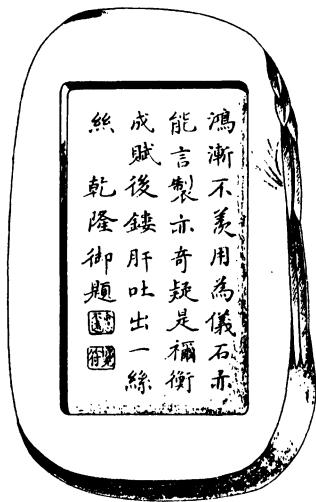 鴻漸不羨用為儀石亦
能言製亦奇疑是禰衡
成賦後鏤肝吐出一絲
絲 乾隆御題